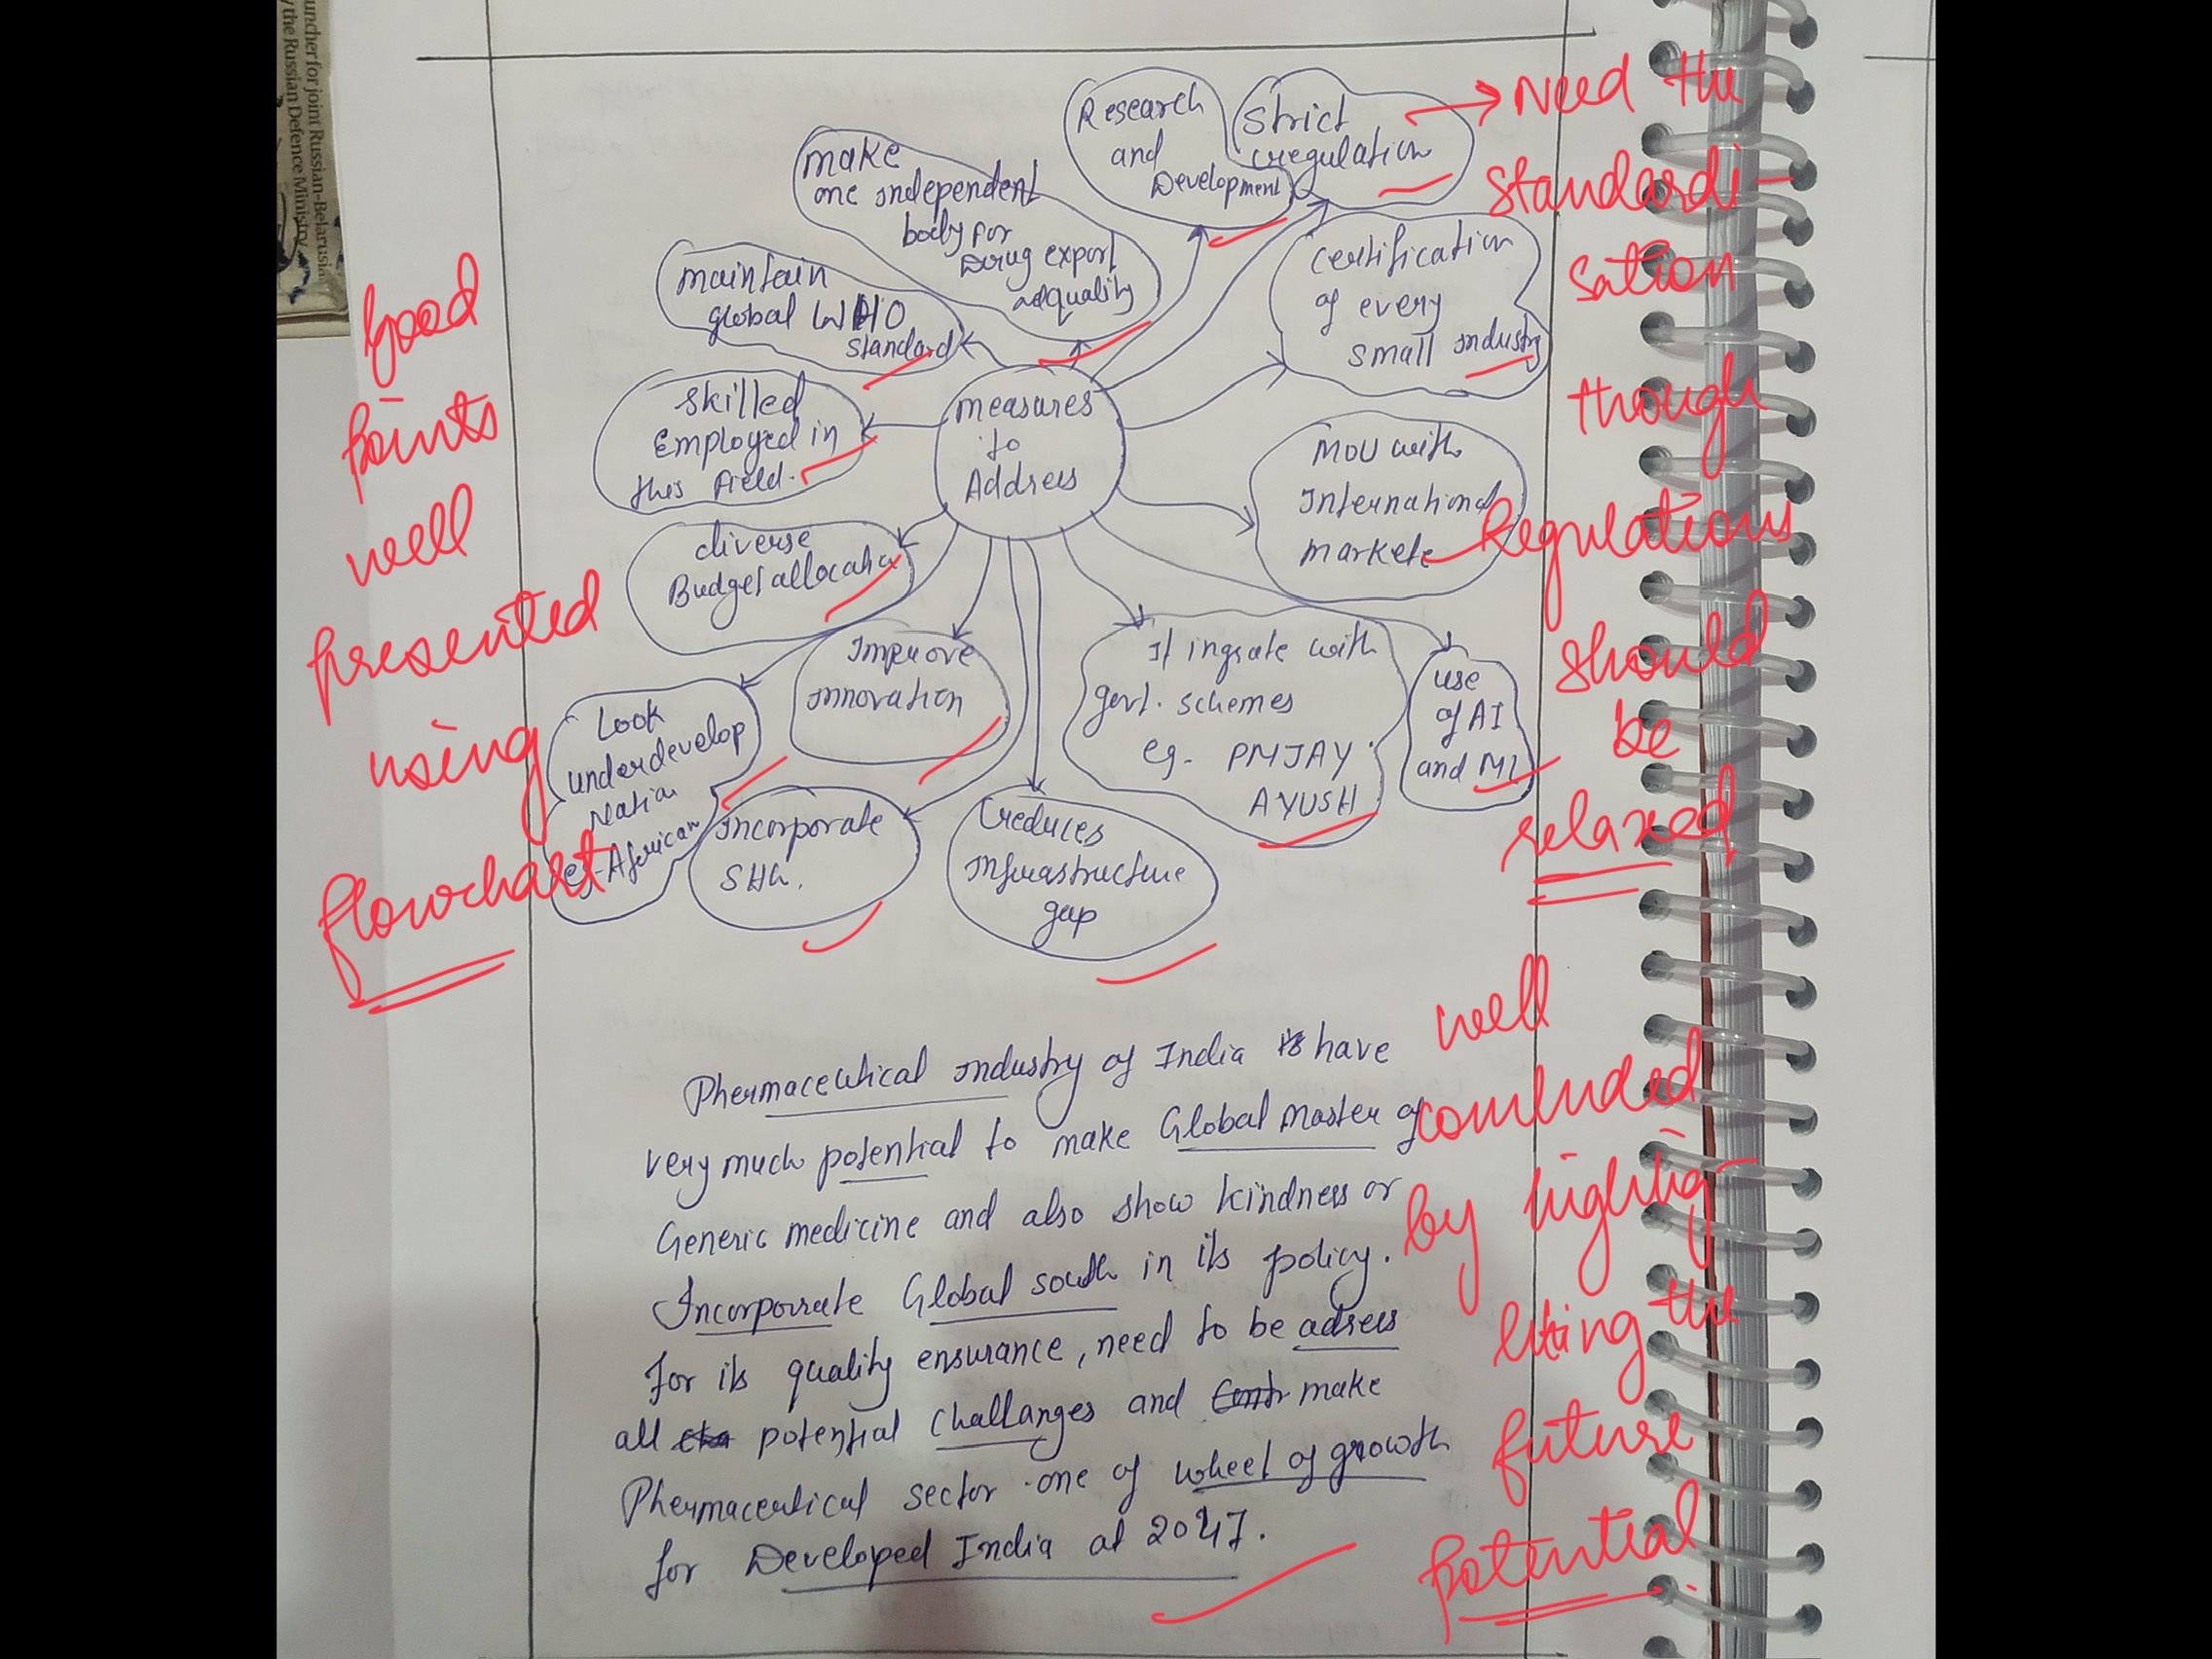 uncher for joint Russian-Belarusia
the Russian Defence Ministry
Research
and
Development
Strict
regulation
make
one independent
body for
Drug export
quality
maintain
global WHO
standard
Certification
of every
small industry
skilled
Employed in
this field.
measures
to
Address
MOU with
International
markete
diverse
Budget allocation
Improve
innovation
It ingrate with
govt. schemes
eg. PMJAY
AYUSH
use
of AI
and ML
Look
underdevelop
Nation
eg-African
Incorporate
SHG.
reduces
infrastructure
gap
Phermaceutical industry of India have
very much potential to make Global Master of
Generic medicine and also show kindness or
Incorporrate Global south in its policy.
For its quality ensurance, need to be adress
all potential challanges and make
Phermaceutical sector one of wheel of growth
for Developed India at 2047.
Good
points
well
presented
using
flowchart
→ Need the
standardi-
sation
though
Regulations
should
be
relaxed
well
concluded
by highlig-
hting the
future
potential